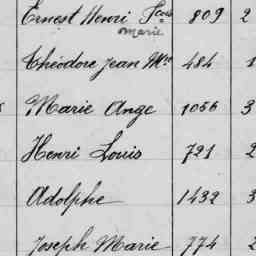 Ernest Henri Fcois 809 2
Marie
Théodore Jean Mie 484 1
Marie Ange 1056 3
Henri Louis 721 2
Adolphe 1432 3
Joseph Marie 774 2